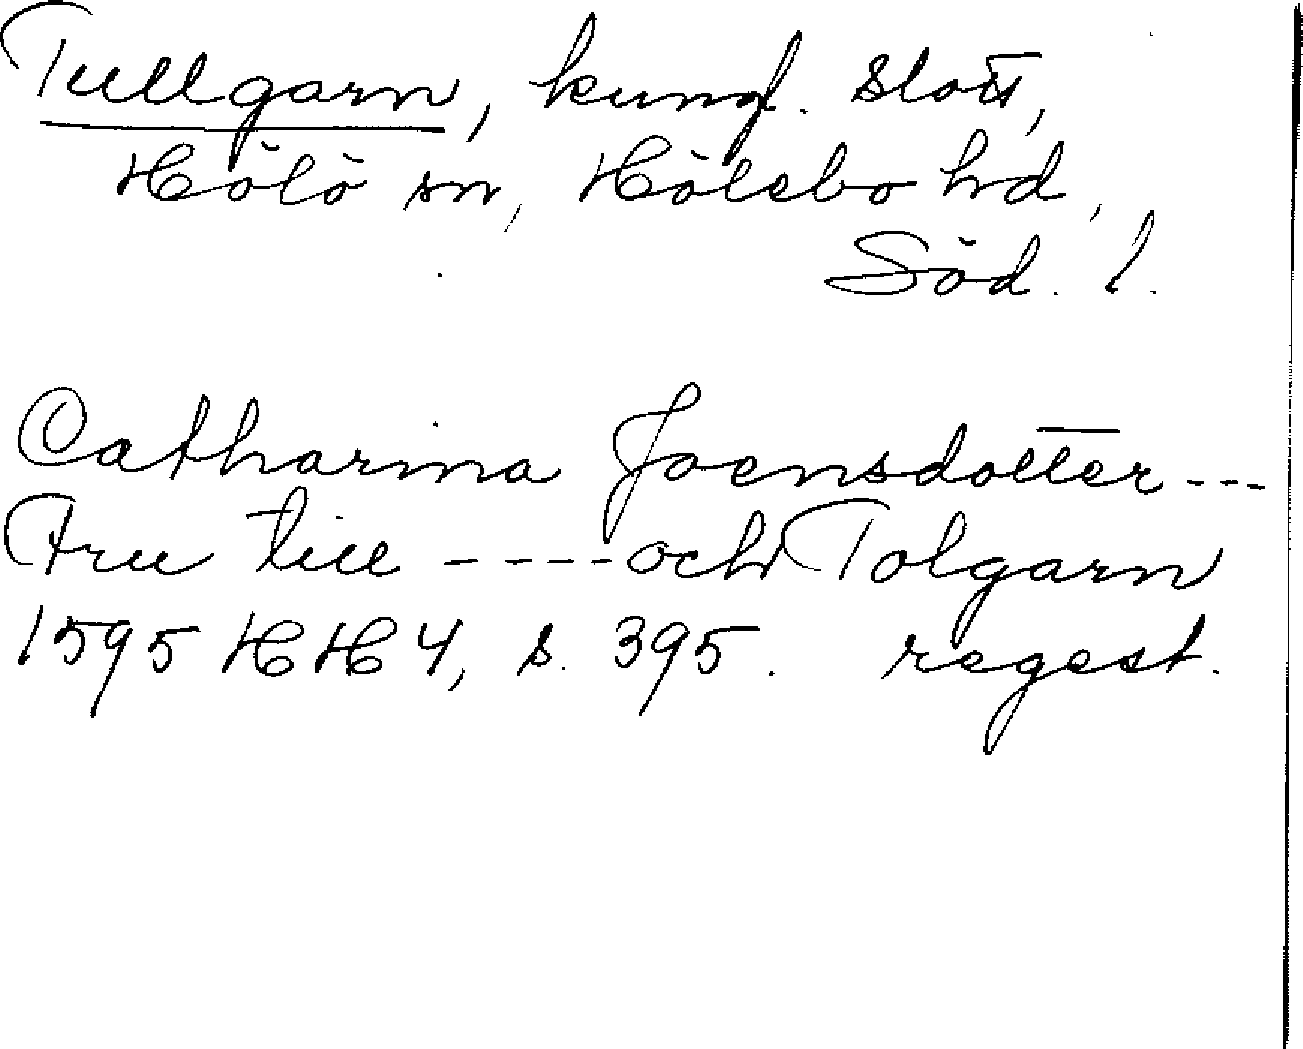 Tullgarn, kungl. slott,
Hölö sn, Hölebo hd,
Söd. l.
Catharina Joensdotter---
Fru till ----och Tolgarn
1595 HH4, s. 395. regest.